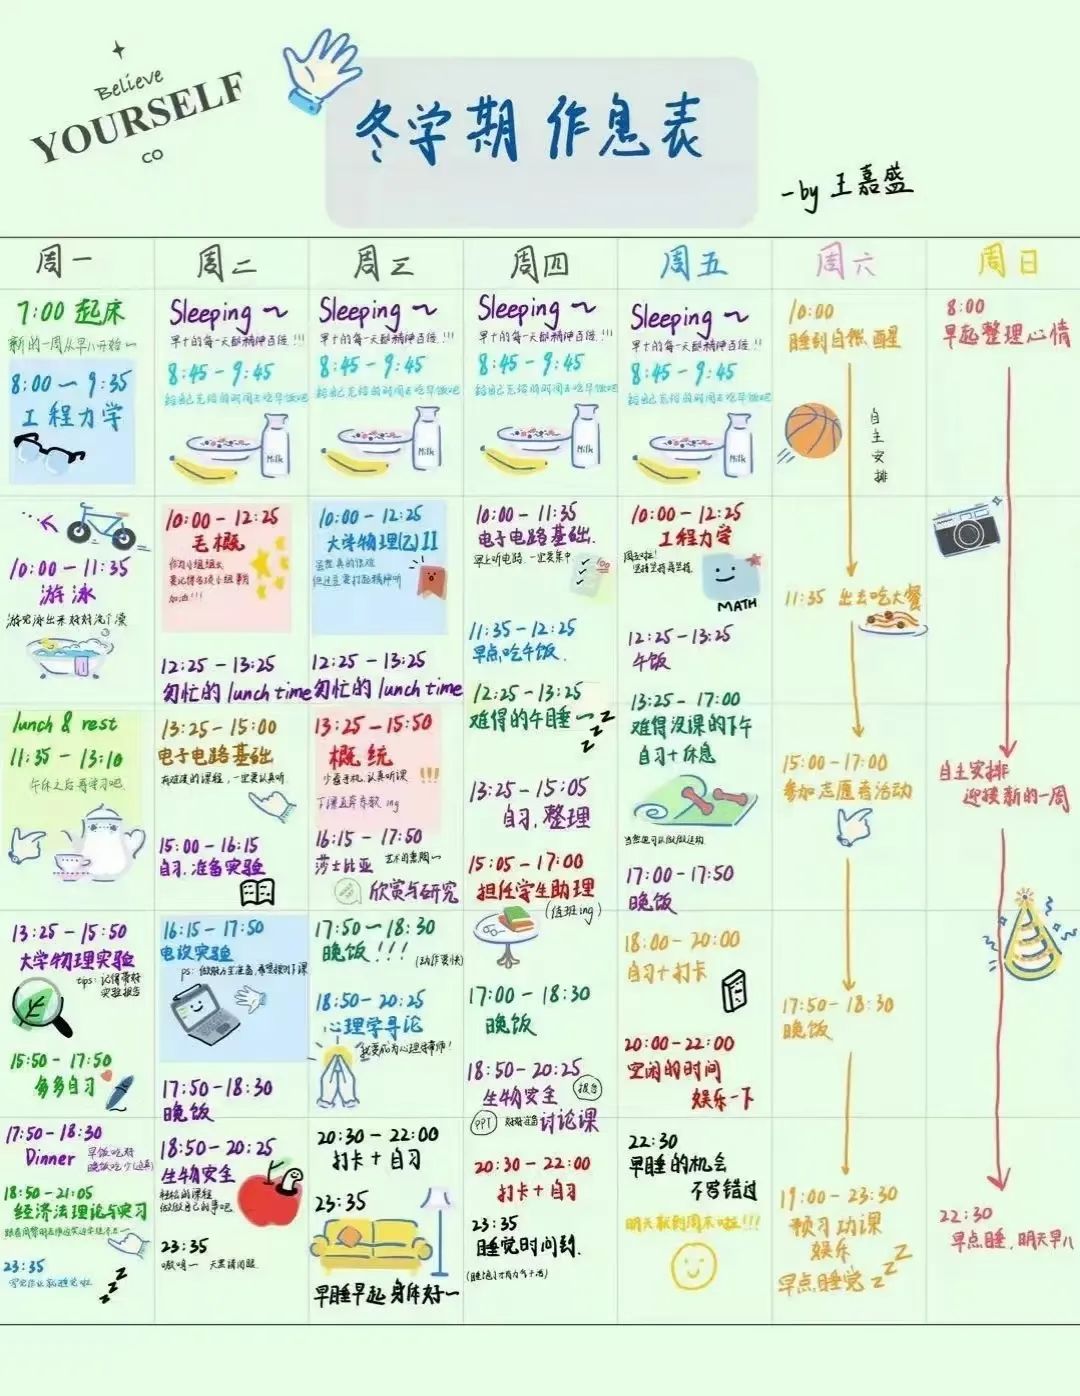 Believe
YOURSELF
CO
冬学期 作息表
-by 王嘉盛
周一
周二
周三
周四
周五
周六
周日
7:00 起床
新的一周从早八开始~
8:00 - 9:35
工程力学
10:00 - 11:35
游泳
lunch & rest
11:35 - 13:10
午休之后再学习吧
13:25 - 15:50
大学物理实验
tips: 记得带好
实验报告
15:50 - 17:50
多多自习
17:50 - 18:30
Dinner
早饭吃好
晚饭吃少
18:50 - 21:05
经济法理论与实习
23:35
Sleeping ~
早十的每一天都精神百倍!!!
8:45 - 9:45
给自己充裕的时间去吃早饭吧
Milk
10:00 - 12:25
毛概
作为小组组长
要记得各项小组事务
加油!!!
12:25 - 13:25
匆忙的 lunch time
13:25 - 15:00
电子电路基础
有难度的课程,一定要认真听
15:00 - 16:15
自习,准备实验
16:15 - 17:50
电议实验
17:50 - 18:30
晚饭
18:50 - 20:25
生物安全
轻松的课程
做做自己的事吧
23:35
Sleeping ~
早十的每一天都精神百倍!!!
8:45 - 9:45
给自己充裕的时间去吃早饭吧
Milk
10:00 - 12:25
大学物理(乙)II
虽然真的很难
但还是要打起精神听
12:25 - 13:25
匆忙的 lunch time
13:25 - 15:50
概统
少看手机,认真听课
!!!
16:15 - 17:50
莎士比亚
艺术的熏陶~
欣赏与研究
17:50 - 18:30
晚饭!!!
(动作要快)
18:50 - 20:25
心理学导论
我要成为心理学导师!
20:30 - 22:00
打卡 + 自习
23:35
早睡早起 身体好~
Sleeping ~
早十的每一天都精神百倍!!!
8:45 - 9:45
给自己充裕的时间去吃早饭吧
Milk
10:00 - 11:35
电子电路基础.
早上听电路 一定要集中
100
11:35 - 12:25
早点吃午饭.
12:25 - 13:25
难得的午睡~
z z z
13:25 - 15:05
自习,整理
15:05 - 17:00
担任学生助理
(值班ing)
17:00 - 18:30
晚饭
18:50 - 20:25
生物安全
报告
PPT
好好准备
讨论课
20:30 - 22:00
打卡 + 自习
23:35
睡觉时间到.
Sleeping ~
早十的每一天都精神百倍!!!
8:45 - 9:45
给自己充裕的时间去吃早饭吧
Milk
10:00 - 12:25
工程力学
周五啦!
坚持坚持再坚持
MATH
12:25 - 13:25
午饭
13:25 - 17:00
难得没课的下午
自习 + 休息
当然也可以做做运动
17:00 - 17:50
晚饭
18:00 - 20:00
自习 + 打卡
20:00 - 22:00
空闲的时间
娱乐一下
22:30
早睡的机会
不容错过
明天就到周末啦!!!
10:00
睡到自然醒
自主安排
11:35 出去吃大餐
15:00 - 17:00
参加志愿者活动
17:50 - 18:30
晚饭
19:00 - 23:30
预习功课
娱乐
早点睡觉
z z z
8:00
早起整理心情
自主安排
迎接新的一周
22:30
早点睡,明天早八